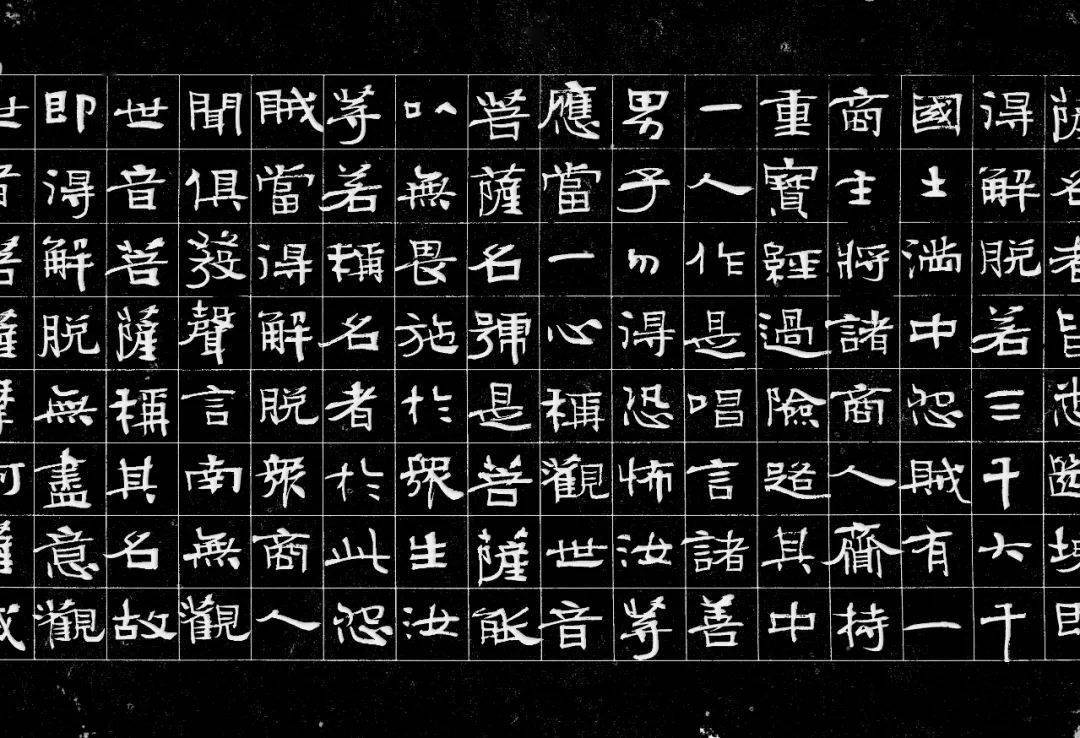 薩名者皆悉斷壞即
得解脫若三千大千
國土滿中怨賊有一
商主將諸商人齎持
重寶經過險路其中
一人作是唱言諸善
男子勿得恐怖汝等
應當一心稱觀世音
菩薩名號是菩薩能
以無畏施於眾生汝
等若稱名者於此怨
賊當得解脫眾商人
聞俱發聲言南無觀
世音菩薩稱其名故
即得解脫無盡意觀
世音菩薩摩訶薩威